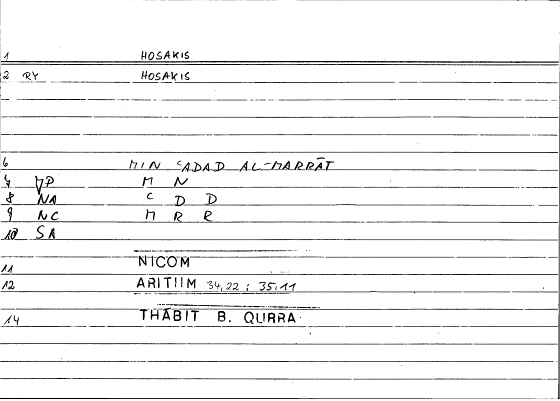 1 HOSAKIS
2 RY HOSAKIS
6 MIN ʿADAD AL-MARRĀT
7 VP M N
8 NA ʿ D D
9 NC M R R
10 SA
11 NICOM
12 ARITIIM 34,22 ; 35,11
14 THĀBIT B. QURRA